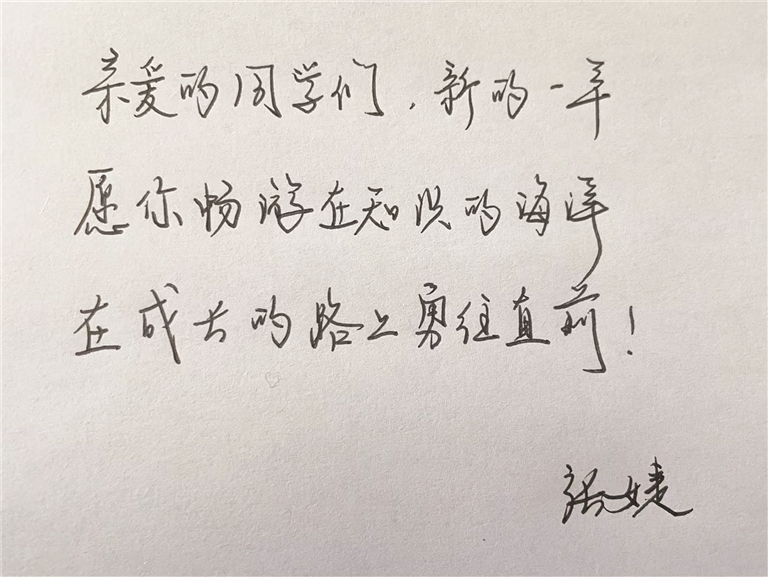 亲爱的同学们，新的一年
愿你畅游在知识的海洋
在成长的路上勇往直前！
张婕